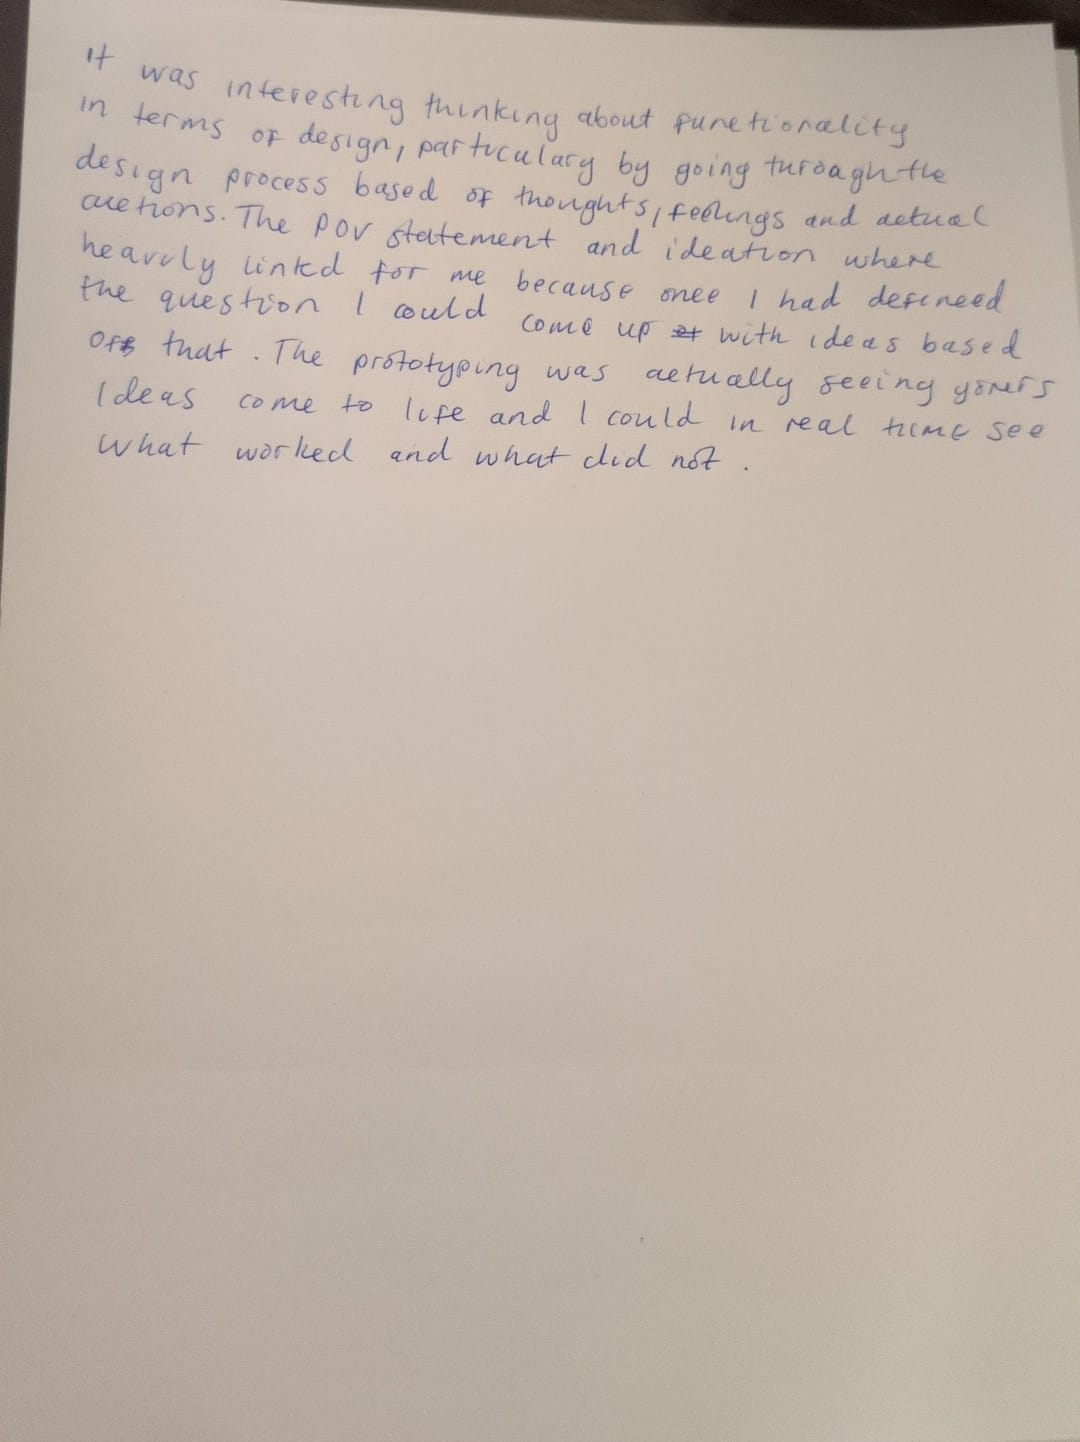 It was interesting thinking about functionality
in terms of design, particulary by going through the
design process based of thoughts, feelings and actual
actions. The POV statement and ideation where
heavily linkd for me because once I had defineed
the question I could come up with ideas based
off that. The prototyping was actually seeing yours
Ideas come to life and I could in real time see
what worked and what did not.